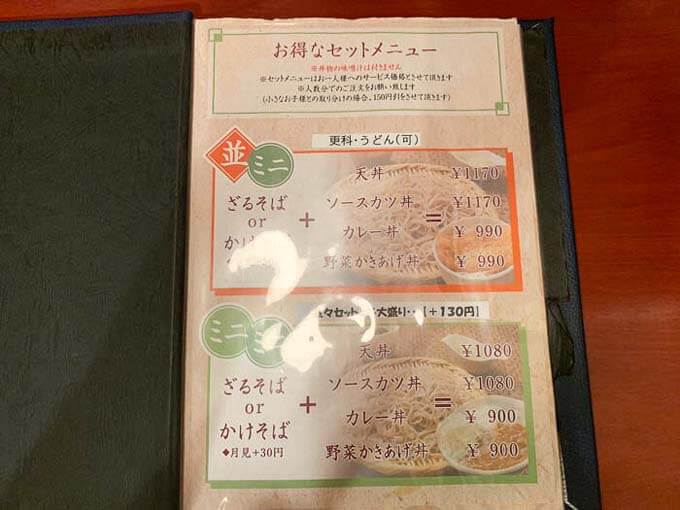 お得なセットメニュー
※丼物の味噌汁は付きません
※セットメニューはお一人様へのサービス価格とさせて頂きます
※人数分でのご注文をお願い致します
(小さなお子様との取り分けの場合、150円引をさせて頂きます)
更科・うどん(可)
並 ミニ
天丼 ¥1170
ざるそば
or
かけ
+
ソースカツ丼 ¥1170
カレー丼 ¥ 990
野菜かきあげ丼 ¥ 990
=
々セット 大盛り・・【+130円】
ミニ ミニ
天丼 ¥1080
ざるそば
or
かけそば
◆月見+30円
+
ソースカツ丼 ¥1080
カレー丼 ¥ 900
野菜かきあげ丼 ¥ 900
=